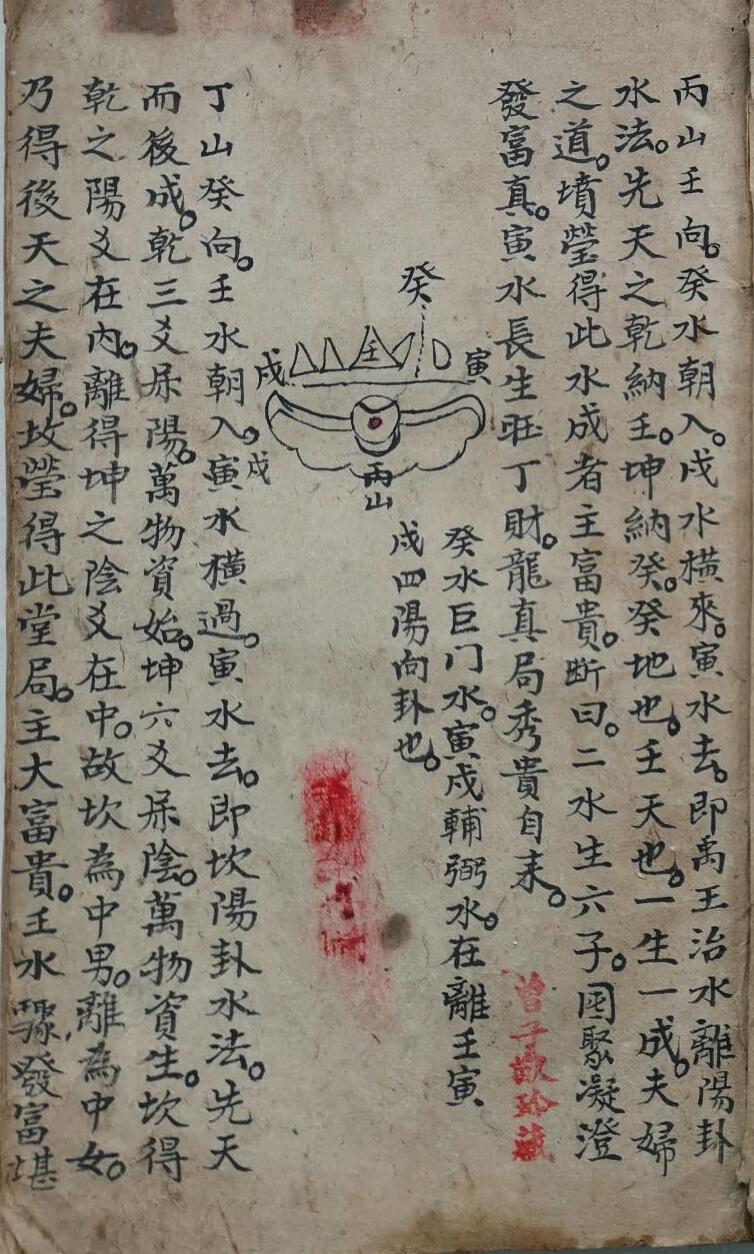 丙山壬向。癸水朝入。戍水橫來。寅水去。即禹王治水離陽卦
水法。先天之乾納壬。坤納癸。癸地也。壬天也。一生一成。夫婦
之道。墳瑩得此水成者主富貴。斷曰。二水生六子。囷聚凝澄
發富真。寅水長生旺丁財。龍真局秀貴自来。
曾子敬珍藏
癸水巨门水。寅戍輔弼水。在離壬寅
戍四陽向卦也。
癸
壬
寅
戍
丙山
丁山癸向。壬水朝入。寅水橫過。寅水去。即坎陽卦水法。先天
戍
而後成。乾三爻屬陽。萬物資始。坤六爻屬陰。萬物資生。坎得
乾之陽爻在內。離得坤之陰爻在中。故坎為中男。離為中女。
乃得後天之夫婦。故瑩得此堂局。主大富貴。壬水驟發富堪